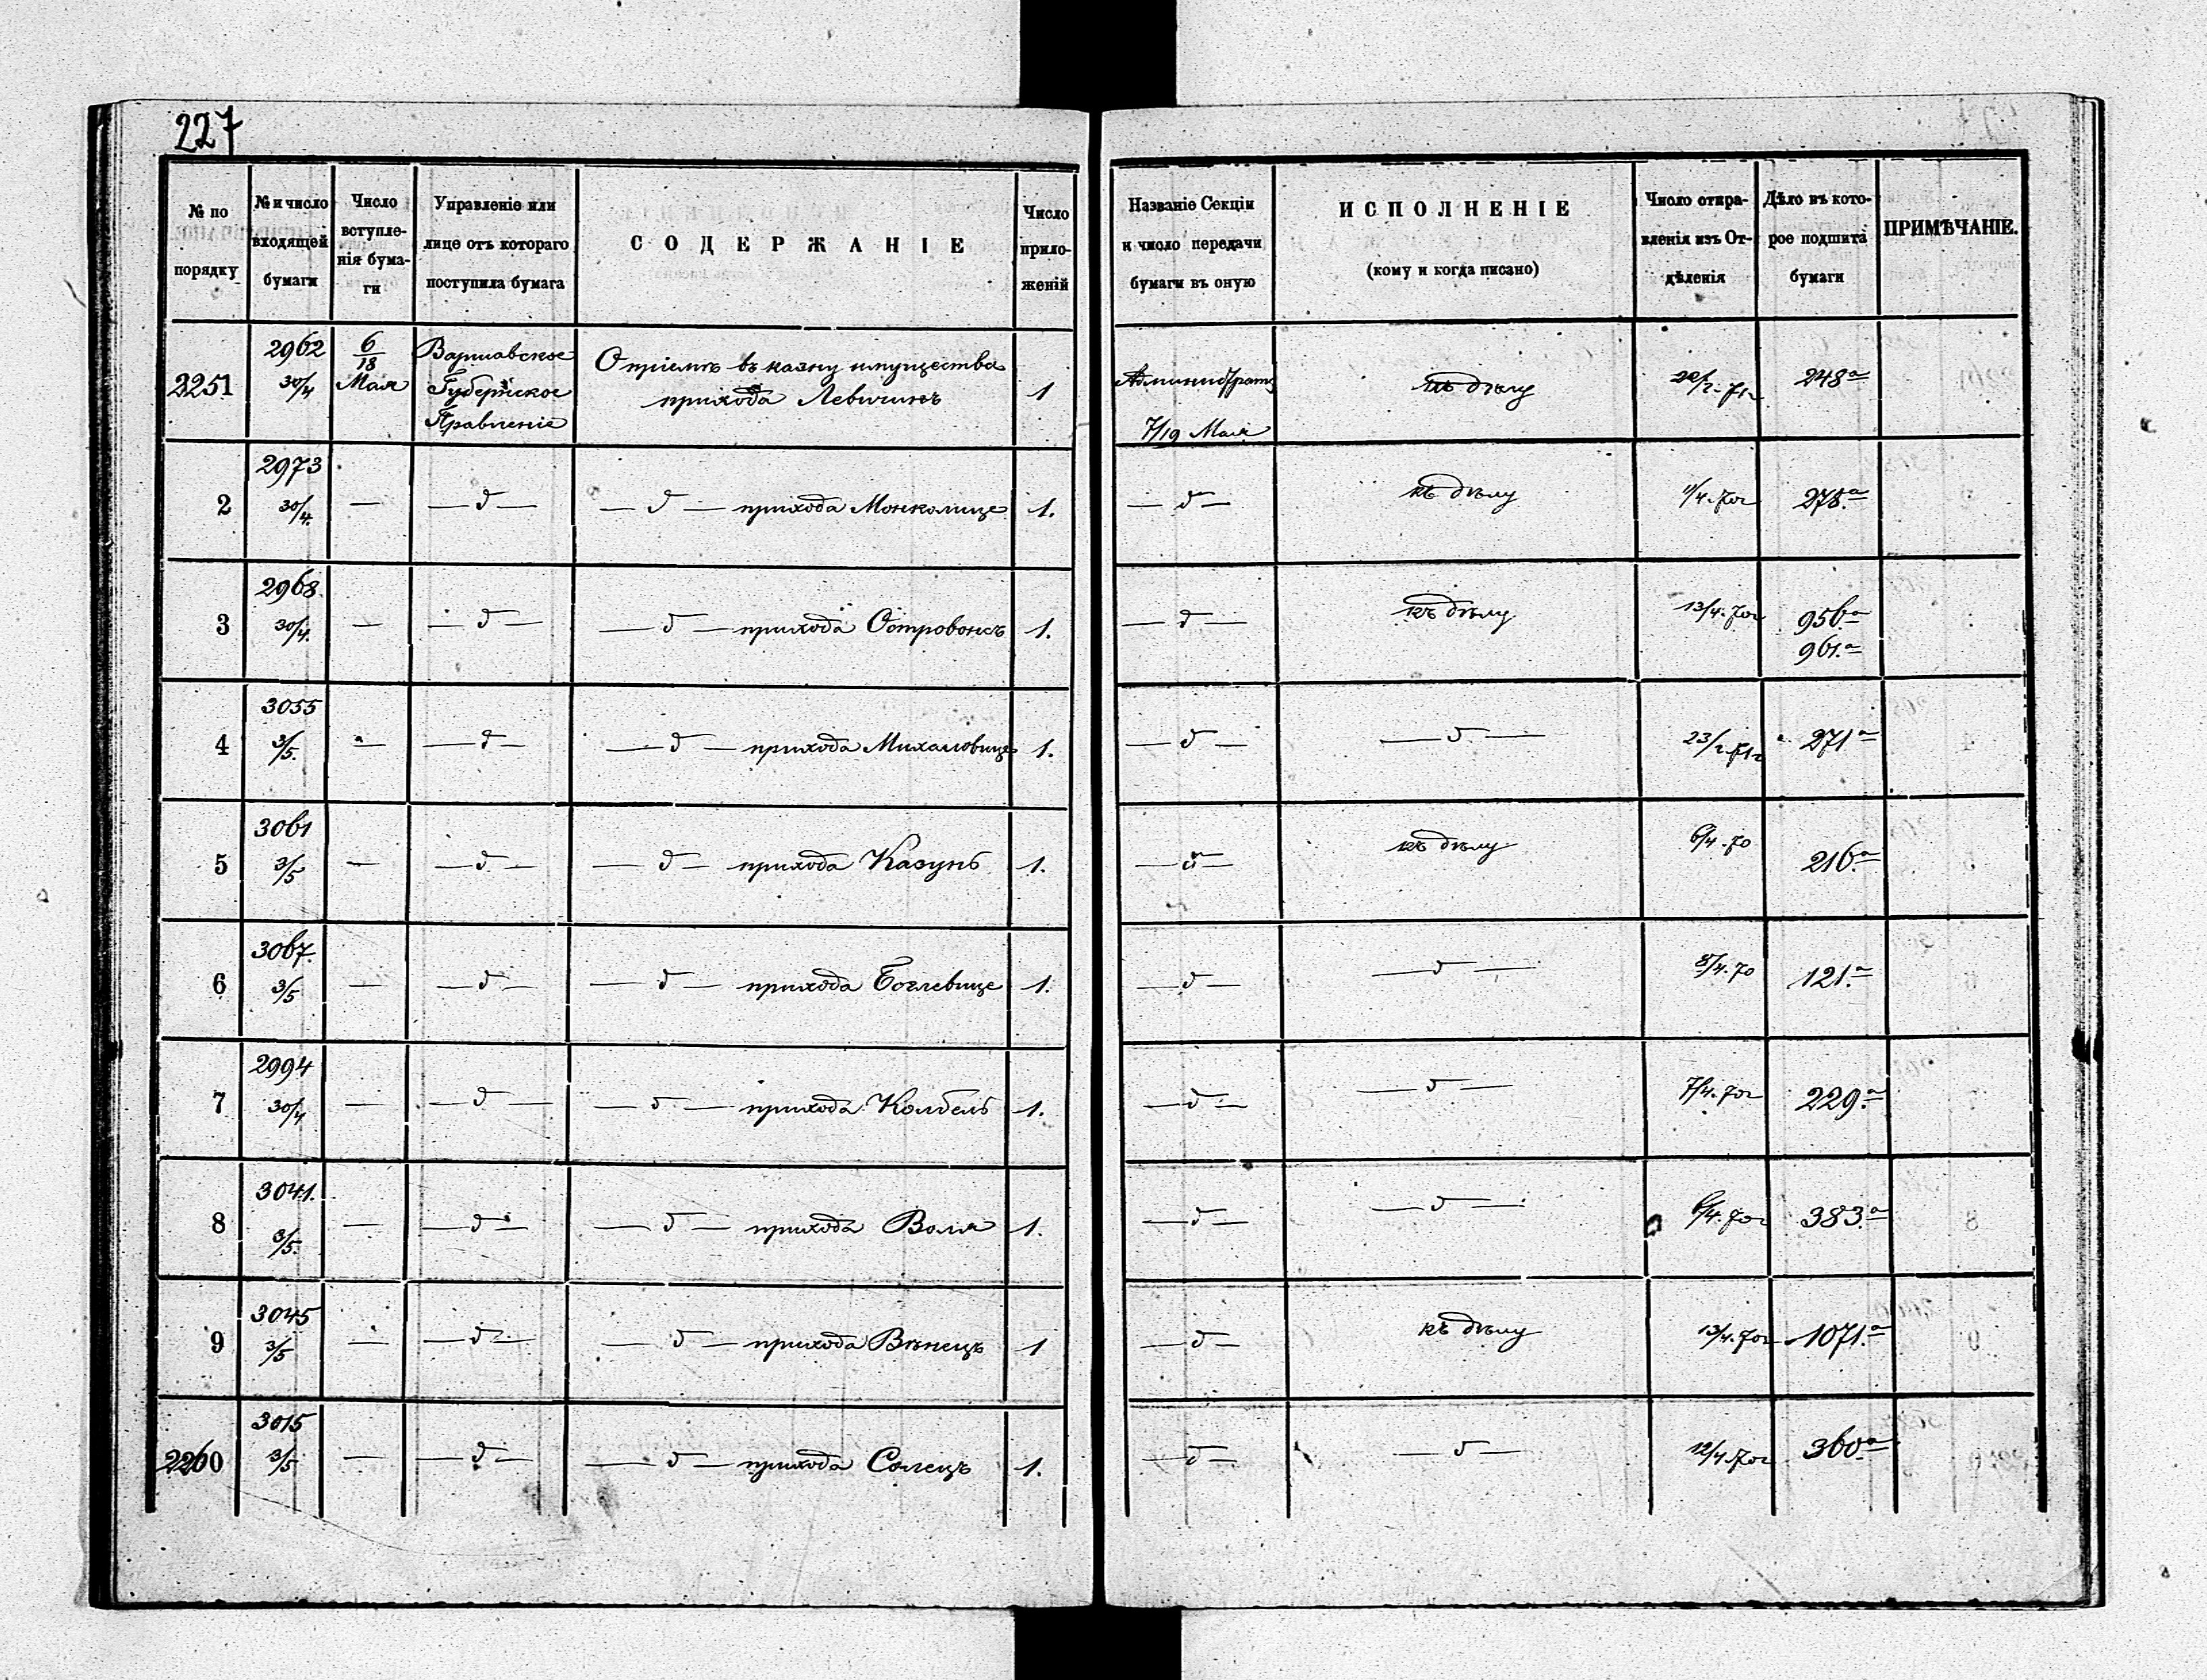 227
№ по порядку
№ и число входящей бумаги
Число вступле-нія бума-ги
Управленіе или лице отъ котораго поступила бумага
СОДЕРЖАНІЕ
Число прило-женій
Названіе Секціи и число передачи бумаги въ оную
ИСПОЛНЕНІЕ
(кому и когда писано)
Число отпра-вленія изъ От-дѣленія
Дѣло въ кото-рое подшита бумаги
ПРИМѢЧАНІЕ.
2251 2962 30/4 6/18 Мая Варшавское Губернское Правленіе О пріемѣ въ казну имущества прихода Левичинъ 1 7/19 Мая къ дѣлу 248а
2 2973 30/4. — — д — — д — прихода 1. — д — къ дѣлу 11/4. 70г 278.а
3 2968. 30/4. — — д — — д — прихода 1. — д — къ дѣлу 13/4. 70г 956а 961.а
4 3055 3/5. — — д — — д — прихода Михаловице 1. — д — — д — 23/2 71г 271а
5 3061 3/5 — — д — — д — прихода Казунь 1. — д — къ дѣлу 6/4. 70 216.а
6 3067. 3/5 — — д — — д — прихода Боглевице 1. — д — — д — 8/4. 70 121.а
7 2994 30/4 — — д — — д — прихода Колбель 1. — д — — д — 7/4. 70г 229.а
8 3041. 3/5. — — д — — д — прихода Воля 1. — д — — д — 6/4. 70г 383.а
9 3045 3/5 — — д — — д — прихода Вѣнецъ 1 — д — къ дѣлу 13/4. 70г 1071.а
2260 3015 3/5 — — д — — д — прихода Солецъ 1. — д — — д — 12/4. 70г 360.а